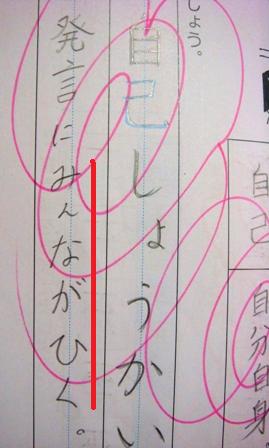 しょう。
自己
自分自身
自己しょうかい
発言にみんながひく。